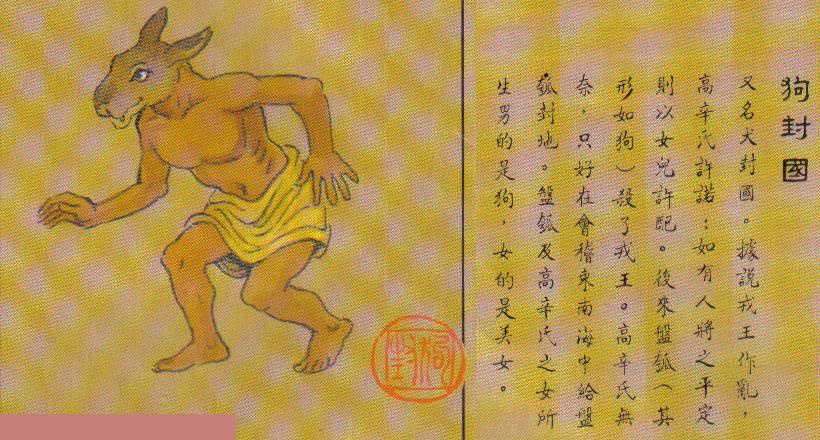 狗封國
又名犬封國。據說戎王作亂，
高辛氏許諾：如有人將之平定
則以女兒許配。後來盤瓠（其
形如狗）殺了戎王。高辛氏無
奈，只好在會稽東南海中給盤
瓠封地。盤瓠及高辛氏之女所
生男的是狗，女的是美女。
狗封